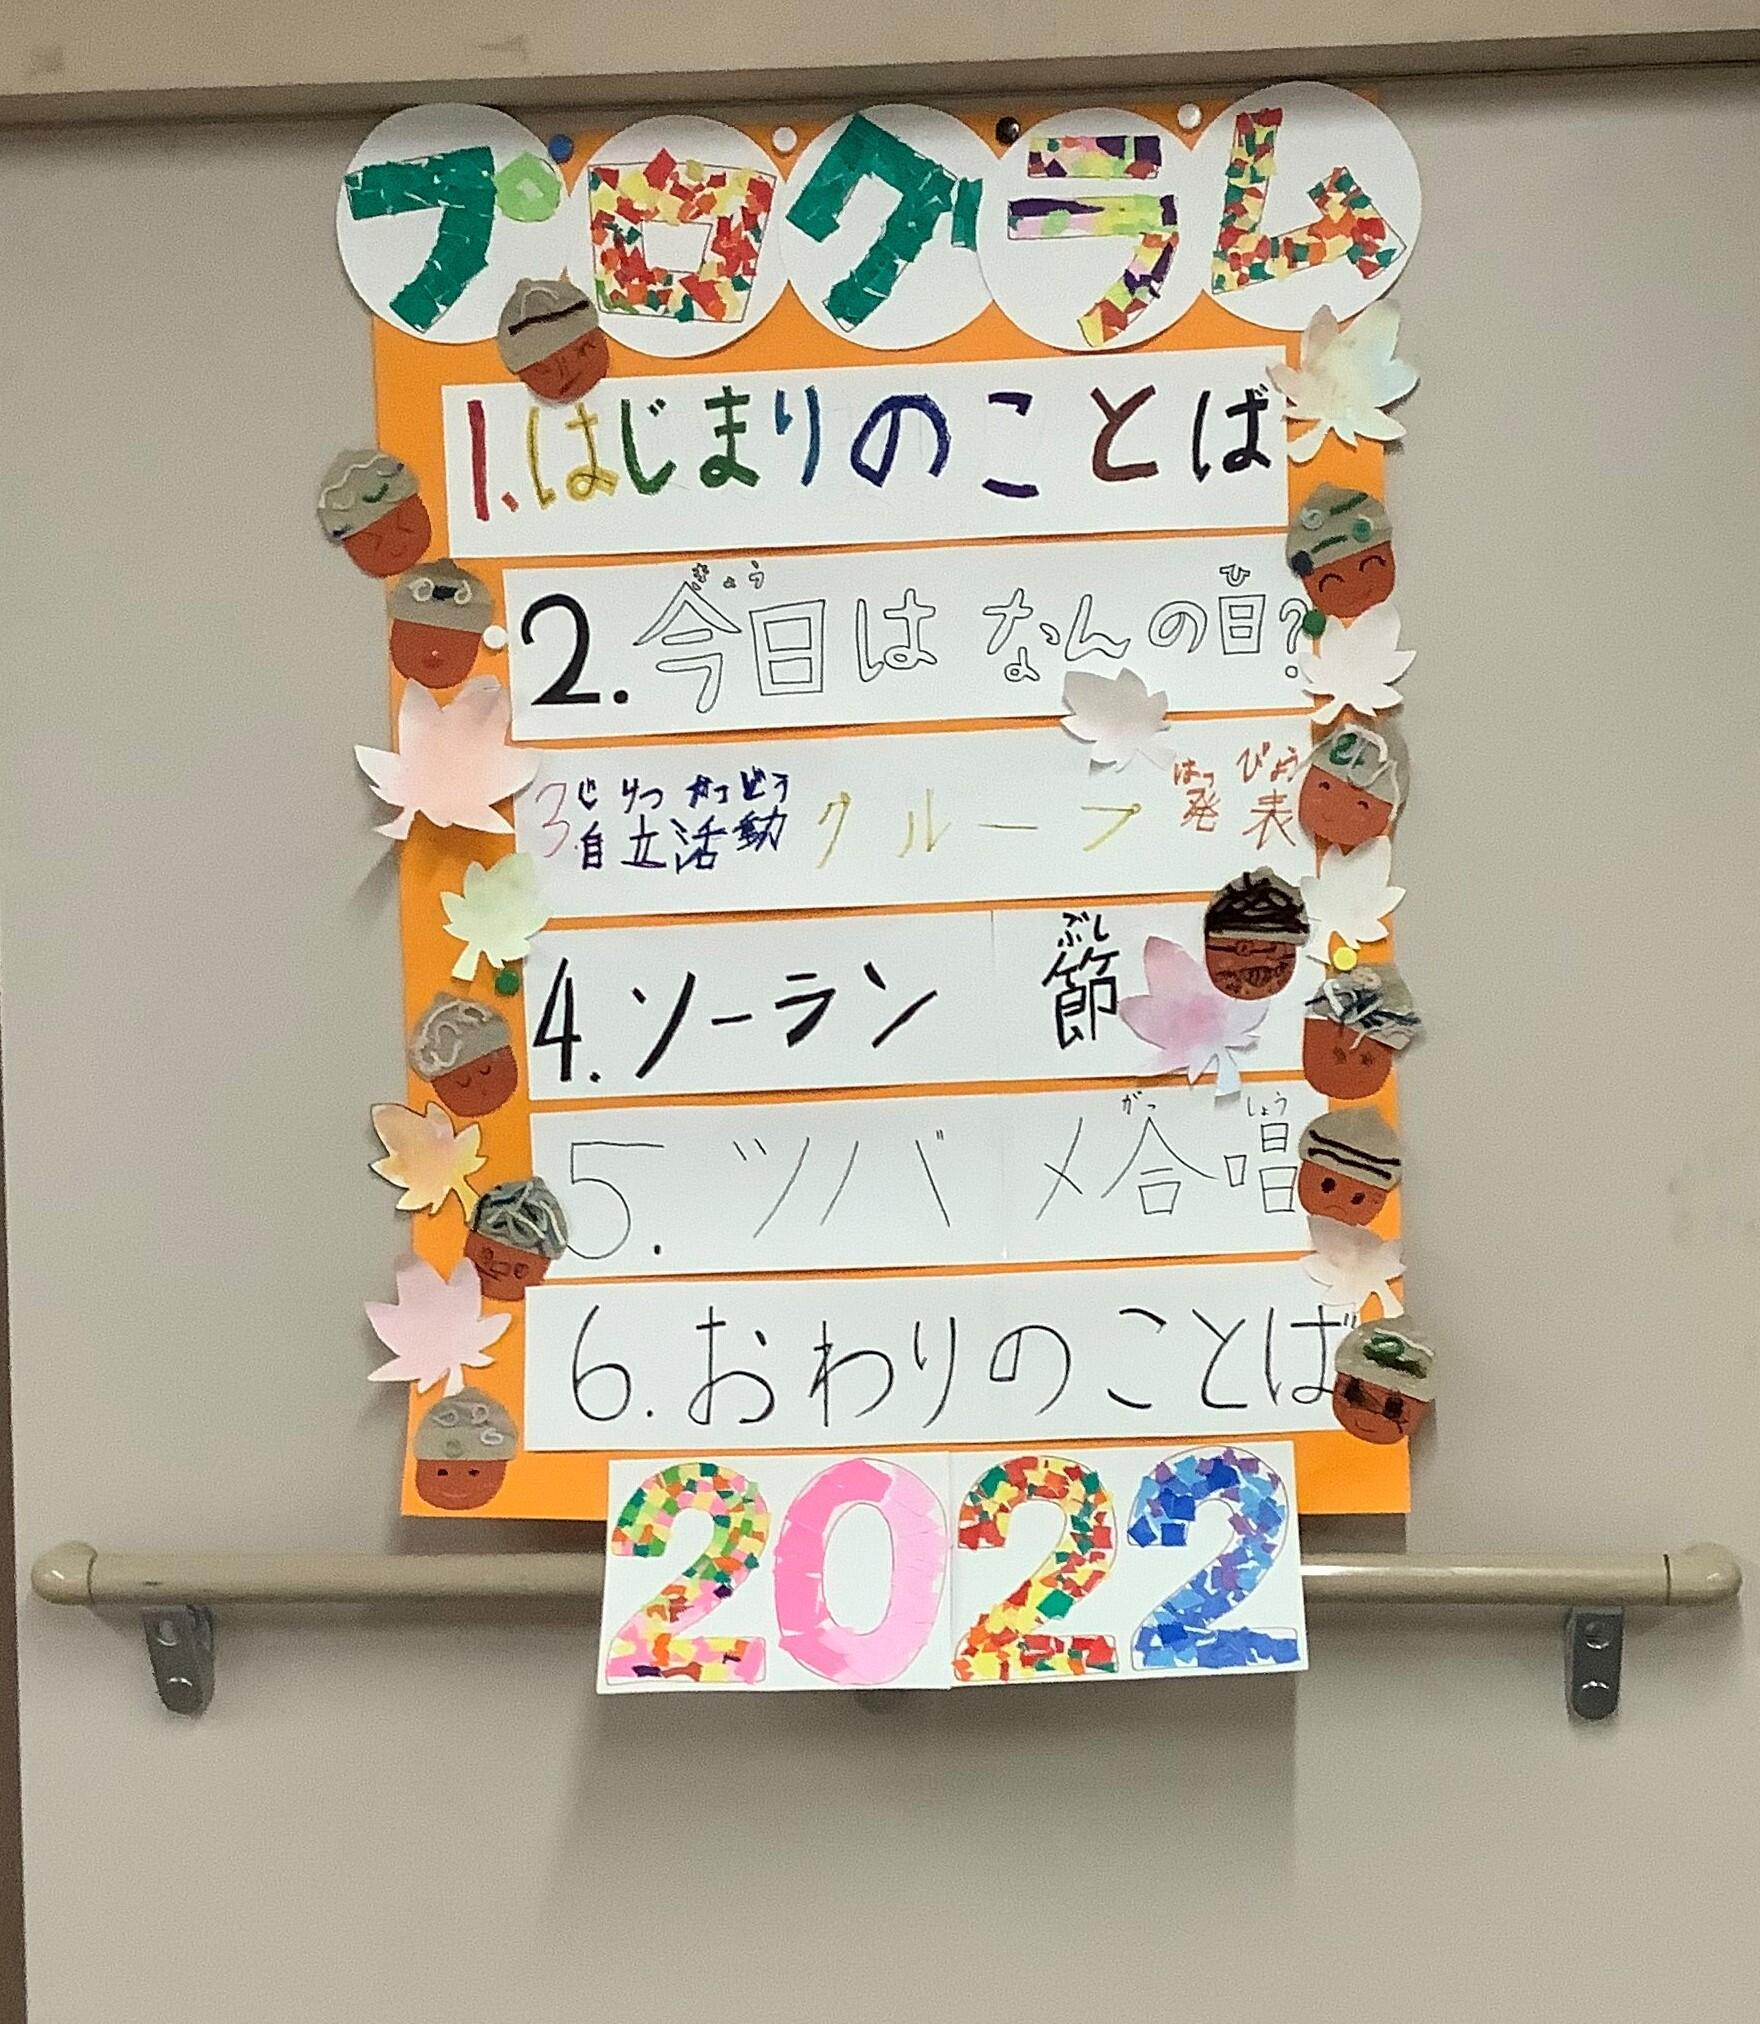 プログラム
1.はじまりのことば
きょう ひ
2.今日は なんの日?
じりつかつどう はっぴょう
3.自立活動グループ発表
ぶし
4.ソーラン節
がっしょう
5.ツバメ合唱
6.おわりのことば
2022